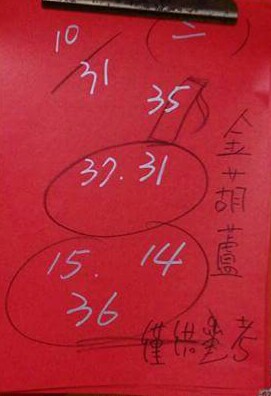 10 (二)
31
35
37. 31
15. 14
36
金葫蘆
僅供參考